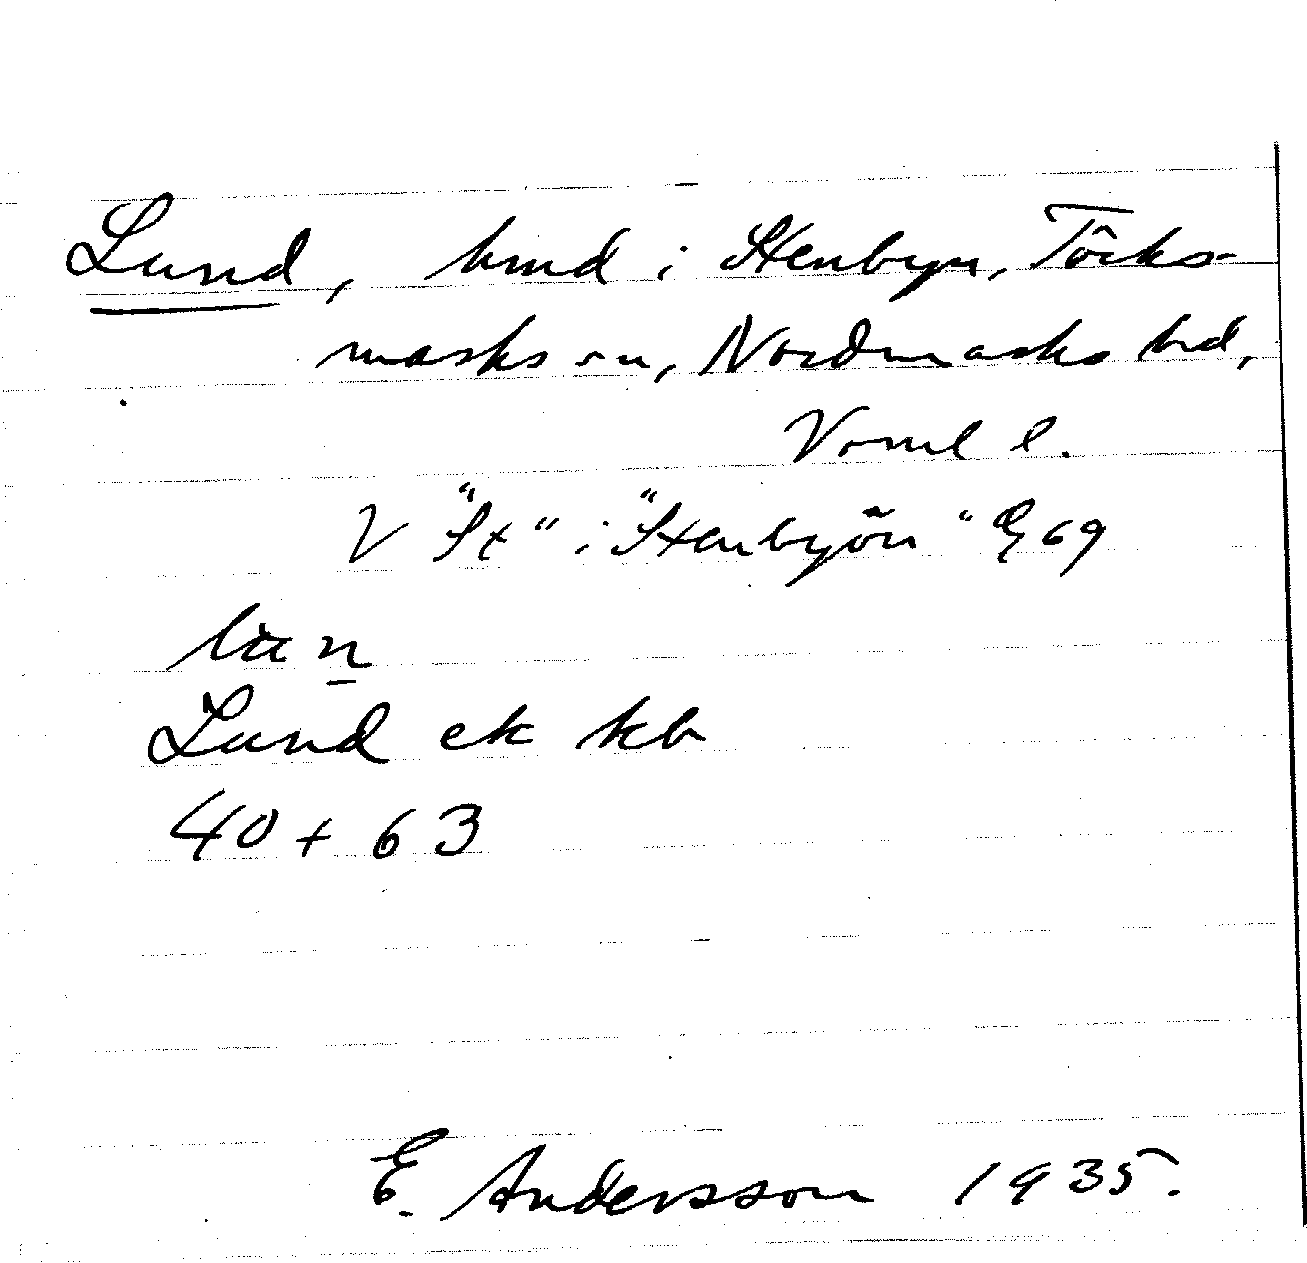 Lund, hmd i Stenbyn, Töcks-
marks sn, Nordmarks hd,
Vrml l.
V "St" i "Stenbyön" E 69
Lund ek kb
40 + 63
E. Andersson 1935.